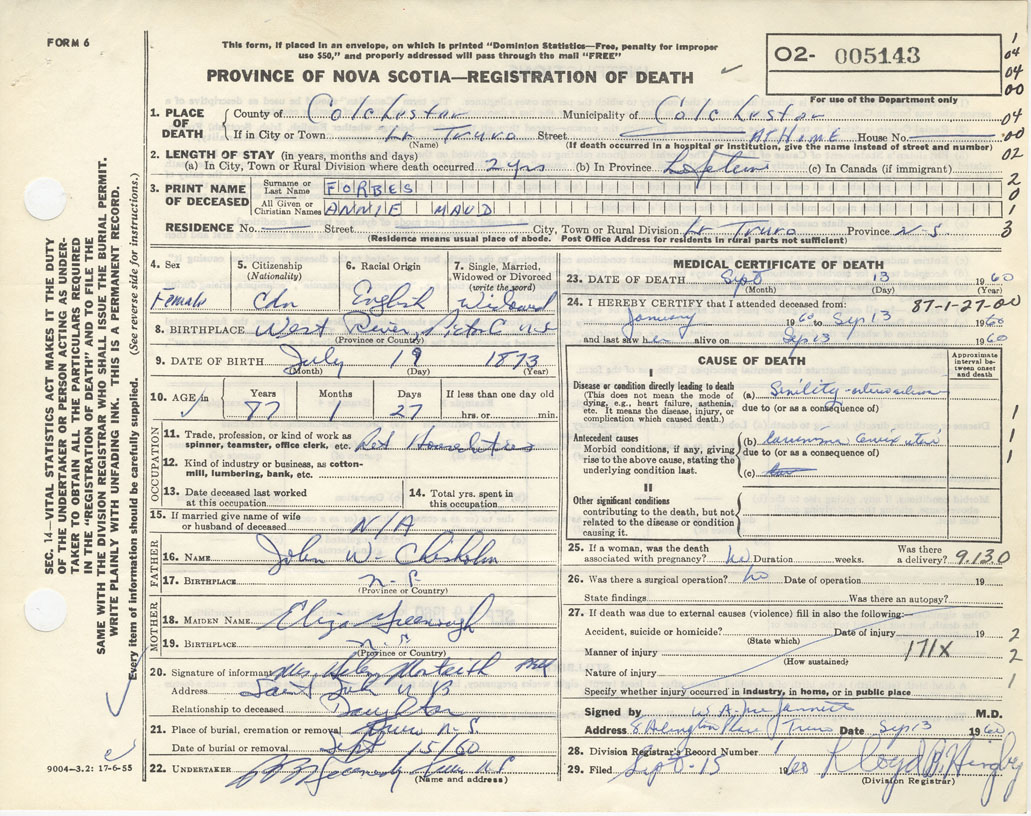 FORM 6
This form, if placed in an envelope, on which is printed "Dominion Statistics—Free, penalty for improper
use $50," and properly addressed will pass through the mail "FREE"
PROVINCE OF NOVA SCOTIA—REGISTRATION OF DEATH
02- 005143
For use of the Department only
1
04
04
00
04
00
02
2
0
1
3
SEC. 14—VITAL STATISTICS ACT MAKES IT THE DUTY
OF THE UNDERTAKER OR PERSON ACTING AS UNDER-
TAKER TO OBTAIN ALL THE PARTICULARS REQUIRED
IN THE "REGISTRATION OF DEATH" AND TO FILE THE
SAME WITH THE DIVISION REGISTRAR WHO SHALL ISSUE THE BURIAL PERMIT.
WRITE PLAINLY WITH UNFADING INK. THIS IS A PERMANENT RECORD.
Every item of information should be carefully supplied. (See reverse side for instructions.)
1. PLACE OF DEATH
County of Colchester Municipality of Colchester
If in City or Town Lr Truro Street AT HOME House No.
(Name) (If death occurred in a hospital or institution, give the name instead of street and number)
2. LENGTH OF STAY (in years, months and days)
(a) In City, Town or Rural Division where death occurred 2 yrs (b) In Province Lifetime (c) In Canada (if immigrant)
3. PRINT NAME OF DECEASED
Surname or Last Name FORBES
All Given or Christian Names ANNIE MAUD
RESIDENCE No. Street City, Town or Rural Division Lr Truro Province N S
(Residence means usual place of abode. Post Office Address for residents in rural parts not sufficient)
4. Sex 5. Citizenship (Nationality) 6. Racial Origin 7. Single, Married, Widowed or Divorced (write the word)
Female Cdn English Widowed
8. BIRTHPLACE West River, Pictou C N S
(Province or Country)
9. DATE OF BIRTH July 19 1873
(Month) (Day) (Year)
10. AGE in Years Months Days If less than one day
87 1 27 hrs. or min.
OCCUPATION
11. Trade, profession, or kind of work as spinner, teamster, office clerk, etc. Ret Household
12. Kind of industry or business, as cotton-mill, lumbering, bank, etc.
13. Date deceased last worked at this occupation 14. Total yrs. spent in this occupation
15. If married give name of wife or husband of deceased N/A
FATHER
16. NAME John W. Chisholm
17. BIRTHPLACE N. S.
(Province or Country)
MOTHER
18. MAIDEN NAME Eliza Greenough
19. BIRTHPLACE N. S.
(Province or Country)
20. Signature of informant Mrs. Helen Monteith
Address Saint John N B
Relationship to deceased Daughter
21. Place of burial, cremation or removal Truro N.S.
Date of burial or removal Sept 15/60
22. UNDERTAKER Truro N.S.
(Name and address)
9004—3.2: 17-6-55
MEDICAL CERTIFICATE OF DEATH
23. DATE OF DEATH Sept 13 1960
(Month) (Day) (Year)
24. I HEREBY CERTIFY that I attended deceased from: 87-1-27-00
January 1960 to Sep 13 1960
and last saw her alive on Sep 13 1960
CAUSE OF DEATH
Approximate interval between onset and death
I
Disease or condition directly leading to death
(This does not mean the mode of dying, e.g., heart failure, asthenia, etc. It means the disease, injury, or complication which caused death.)
(a) Senility
due to (or as a consequence of)
Antecedent causes
Morbid conditions, if any, giving rise to the above cause, stating the underlying condition last.
(b) carcinoma cervix uteri
due to (or as a consequence of)
(c)
II
Other significant conditions
contributing to the death, but not related to the disease or condition causing it.
1
1
1
25. If a woman, was the death associated with pregnancy? No Duration weeks. Was there a delivery? 9.130
26. Was there a surgical operation? No Date of operation 19
State findings Was there an autopsy?
27. If death was due to external causes (violence) fill in also the following:
Accident, suicide or homicide? Date of injury 19
(State which)
Manner of injury 171X
(How sustained)
Nature of injury
Specify whether injury occurred in industry, in home, or in public place
2
2
1
Signed by M.D.
Address 8 Arlington Place Truro Date Sep 13 1960
28. Division Registrar's Record Number
29. Filed Sept-15 1960
(Division Registrar)